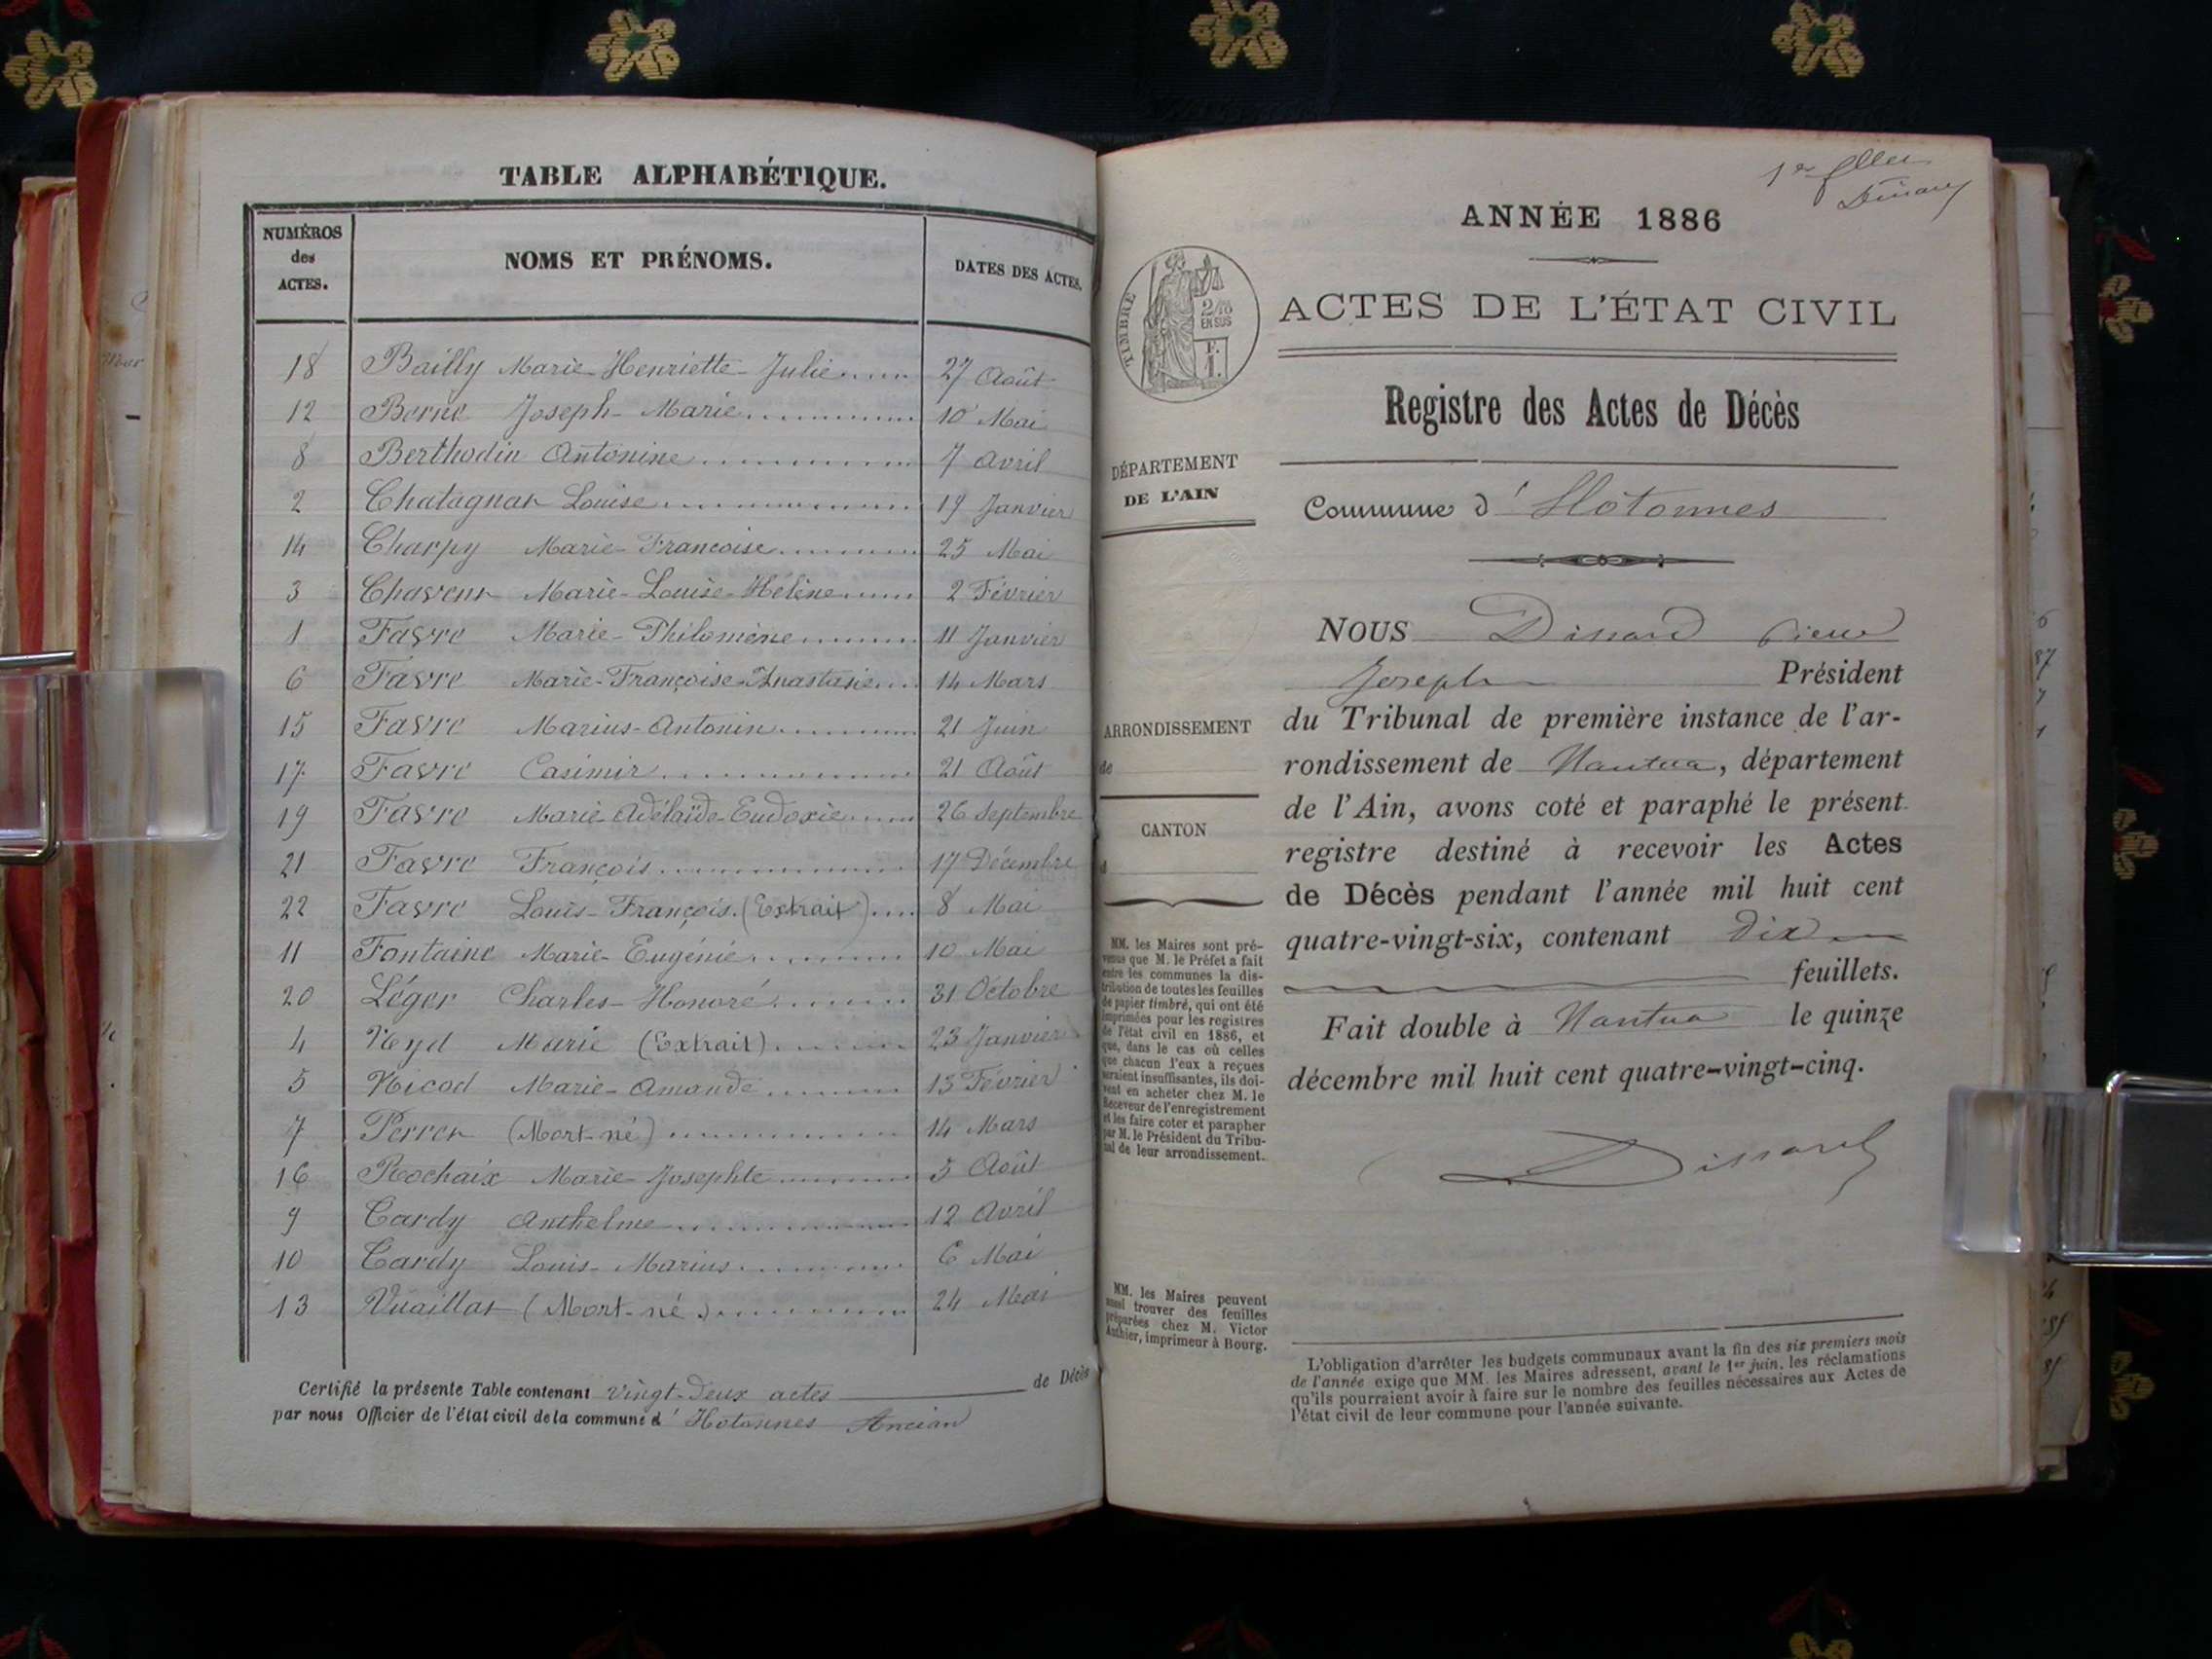 TABLE ALPHABÉTIQUE.
NUMÉROS des ACTES. NOMS ET PRÉNOMS. DATES DES ACTES.
18 Bailly Marie-Henriette-Julie 27 Août
12 Berne Joseph-Marie 10 Mai
8 Berthodin Antonine 7 Avril
2 Chatagnat Louise 19 Janvier
14 Charpy Marie-Françoise 25 Mai
3 Chaveur Marie-Louise-Hélène 2 Février
1 Favre Marie-Philomène 11 Janvier
6 Favre Marie-Françoise-Anastasie 14 Mars
15 Favre Marius-Antonin 21 Juin
17 Favre Casimir 21 Août
19 Favre Marie Adélaïde-Eudoxie 26 Septembre
21 Favre François 17 Décembre
22 Favre Louis-François (Extrait) 8 Mai
11 Fontaine Marie-Eugénie 10 Mai
20 Léger Charles-Honoré 31 Octobre
4 Neyd Marie (Extrait) 23 Janvier
5 Nicod Marie-Amande 13 Février
7 Perrer (Mort-né) 14 Mars
16 Rochaix Marie-Josephte 5 Août
9 Tardy Anthelme 12 Avril
10 Tardy Louis-Marius 6 Mai
13 Vuaillat (Mort-né) 24 Mai
Certifié la présente Table contenant vingt-deux actes de Décès
par nous Officier de l'état civil de la commune d'Hotonnes Ancian
1er
ANNÉE 1886
TIMBRE
2/10
EN SUS
F.
1.
ACTES DE L'ÉTAT CIVIL
Registre des Actes de Décès
DÉPARTEMENT
DE L'AIN
Commune d'Hotonnes
ARRONDISSEMENT
de
CANTON
d
MM. les Maires sont pré-
venus que M. le Préfet a fait
entre les communes la dis-
tribution de toutes les feuilles
de papier timbré, qui ont été
imprimées pour les registres
de l'état civil en 1886, et
que, dans le cas où celles
que chacun l'eux a reçues
seraient insuffisantes, ils doi-
vent en acheter chez M. le
Receveur de l'enregistrement
et les faire coter et parapher
par M. le Président du Tribu-
nal de leur arrondissement.
MM. les Maires peuvent
aussi trouver des feuilles
préparées chez M. Victor
Authier, imprimeur à Bourg.
NOUS Dinard
Joseph Président
du Tribunal de première instance de l'ar-
rondissement de Nantua, département
de l'Ain, avons coté et paraphé le présent
registre destiné à recevoir les Actes
de Décès pendant l'année mil huit cent
quatre-vingt-six, contenant dix
feuillets.
Fait double à Nantua le quinze
décembre mil huit cent quatre-vingt-cinq.
L'obligation d'arrêter les budgets communaux avant la fin des six premiers mois
de l'année exige que MM. les Maires adressent, avant le 1er juin, les réclamations
qu'ils pourraient avoir à faire sur le nombre des feuilles nécessaires aux Actes de
l'état civil de leur commune pour l'année suivante.